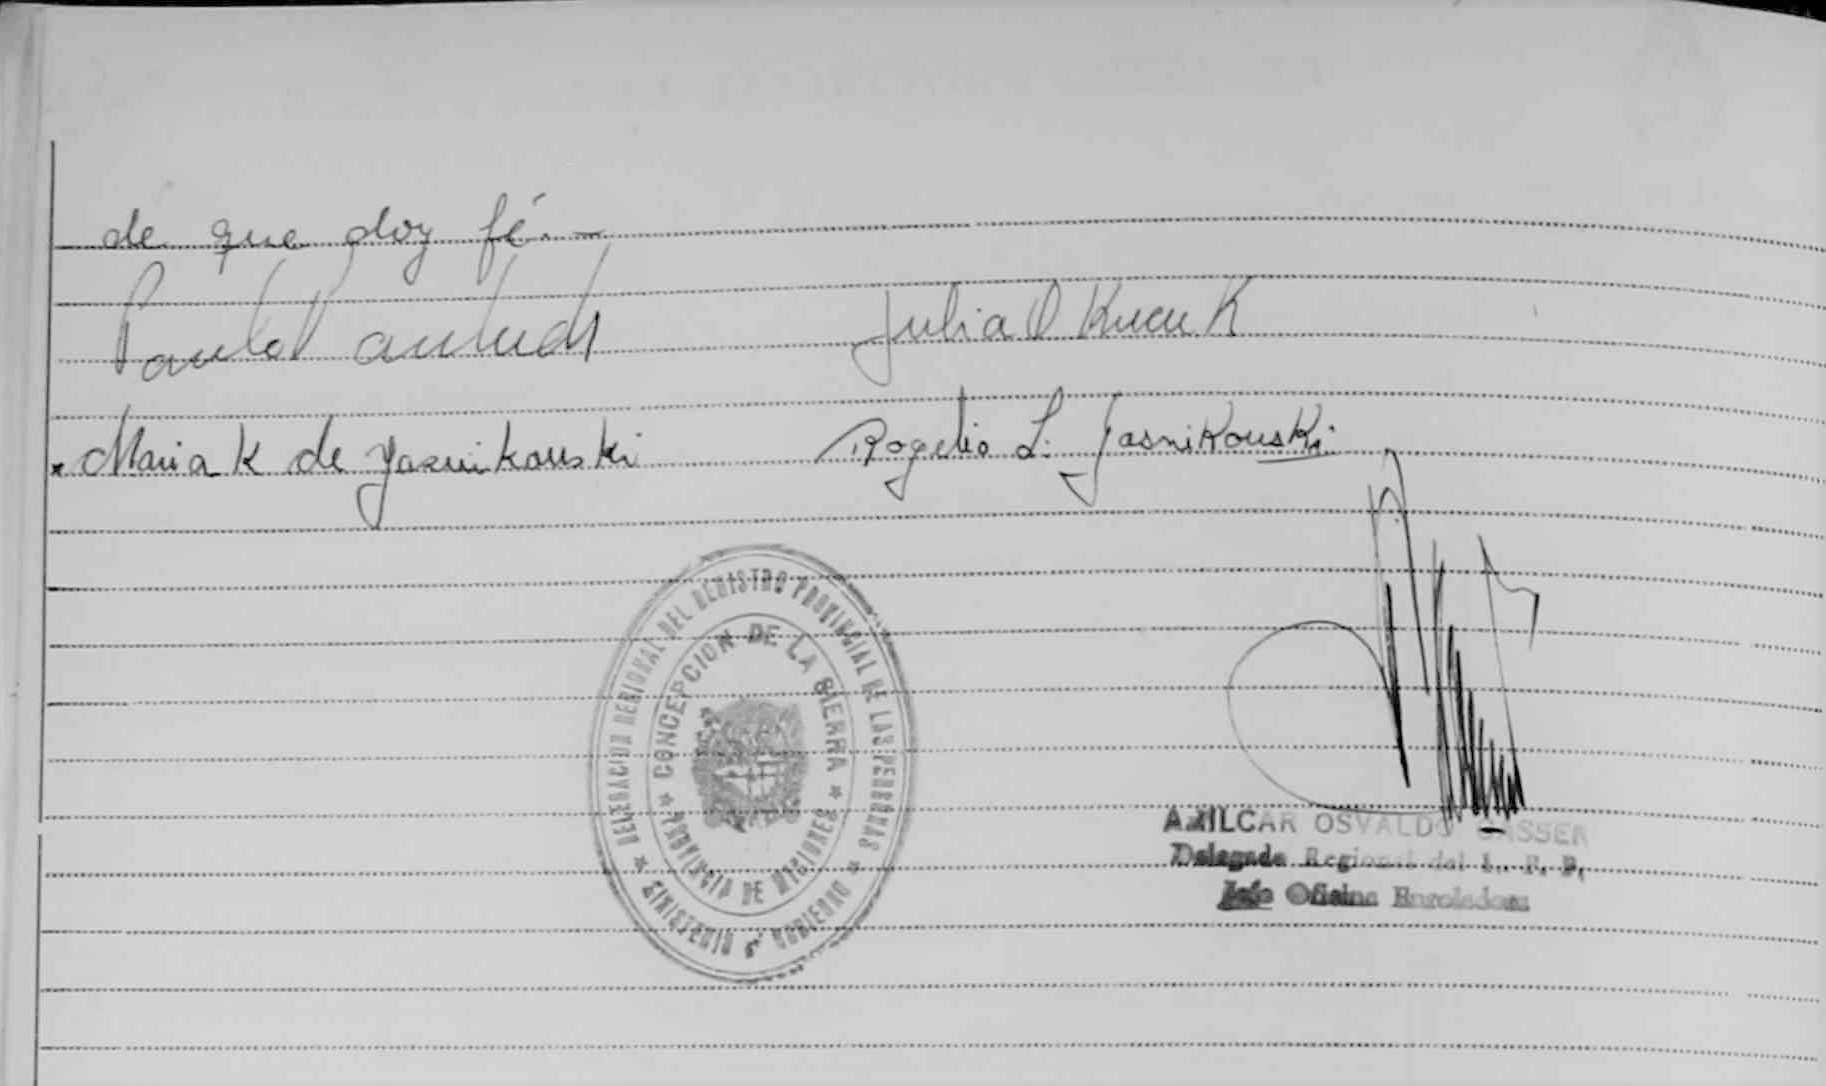 de que doy fé.—
Julia O Kucuk
Maria K de Jasnikouski Rogelio L. Jasnikouski
DELEGACION REGIONAL DEL REGISTRO PROVINCIAL DE LAS PERSONAS
MINISTERIO DE GOBIERNO
CONCEPCION DE LA SIERRA
PROVINCIA DE MISIONES
AMILCAR OSVALDO GASSER
Delegado Regional del R. P. P.
Jefe Oficina Enroladora